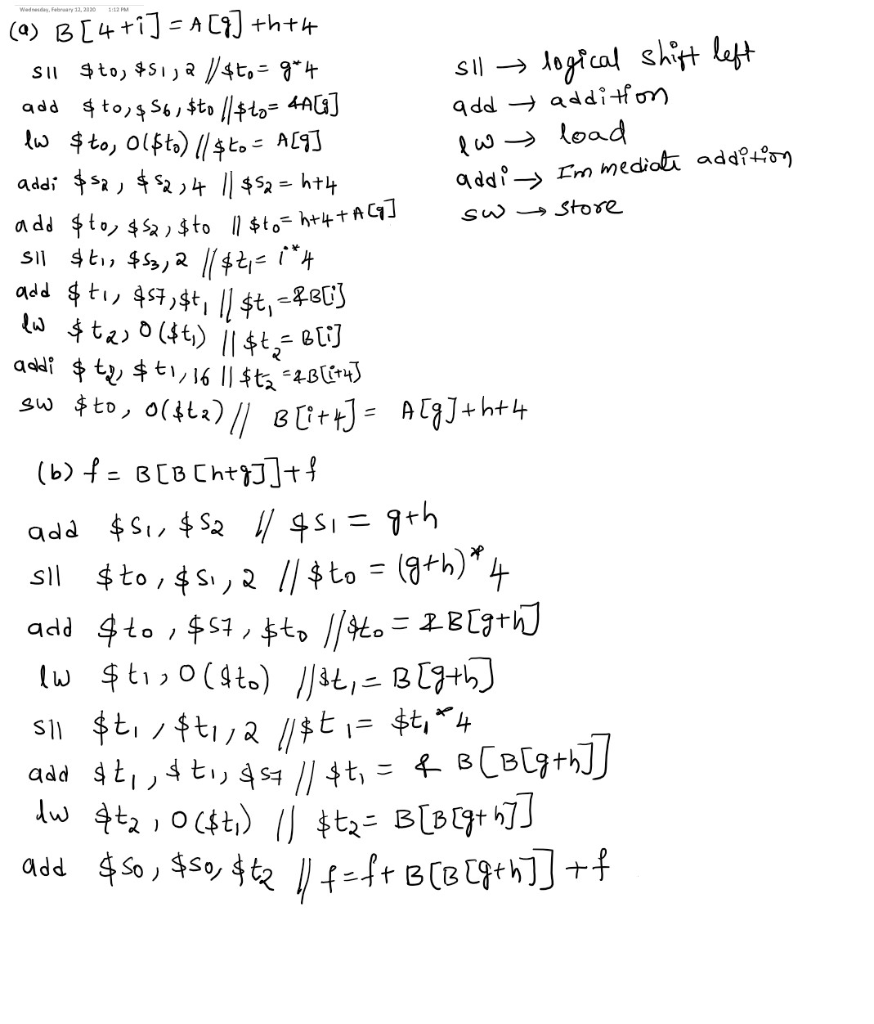 Wednesday, February 12, 2020 1:12 PM
(a) B[4+i] = A[g] +h+4
sll $to, $s1, 2 //$to = g*4
add $to, $s6, $to //$to= &A[g]
lw $to, 0($to) // $to = A[g]
addi $s2, $s2, 4 // $s2 = h+4
add $to, $s2, $to // $to = h+4+A[g]
sll $t1, $s3, 2 // $t1 = i*4
add $t1, $s7, $t1 // $t1 = &B[i]
lw $t2, 0($t1) // $t2 = B[i]
addi $t2, $t1, 16 // $t2 = &B[i+4]
sw $to, 0($t2) // B[i+4] = A[g]+h+4
sll → logical shift left
add → addition
lw → load
addi → Immediate addition
sw → store
(b) f = B[B[h+g]]+f
add $s1, $s2 // $s1 = g+h
sll $to, $s1, 2 // $to = (g+h)*4
add $to, $s7, $to //$to = &B[g+h]
lw $t1, 0($to) //$t1 = B[g+h]
sll $t1, $t1, 2 //$t1 = $t1*4
add $t1, $t1, $s7 // $t1 = & B[B[g+h]]
lw $t2, 0($t1) // $t2 = B[B[g+h]]
add $so, $so, $t2 // f=f+ B[B[g+h]] +f